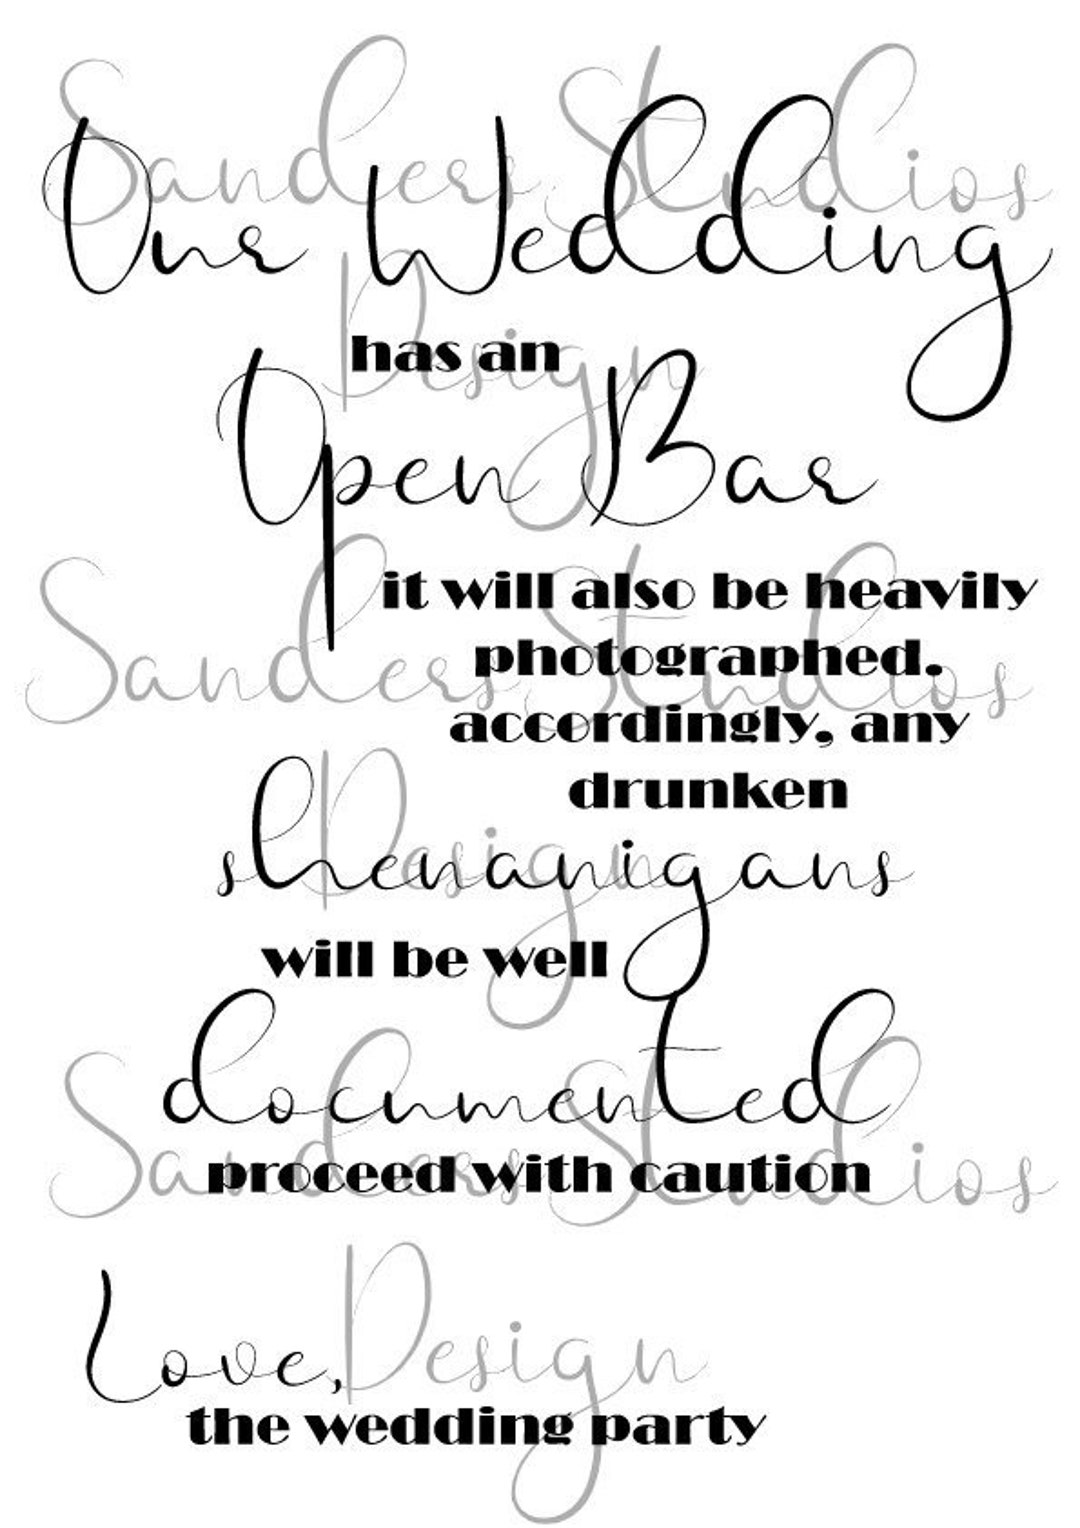 Sanders Studios
Our Wedding
Design
has an
Open Bar
it will also be heavily
photographed.
Sanders Studios
accordingly, any
drunken
Design
shenanigans
will be well
documented
Sanders Studios
proceed with caution
Love,
Design
the wedding party